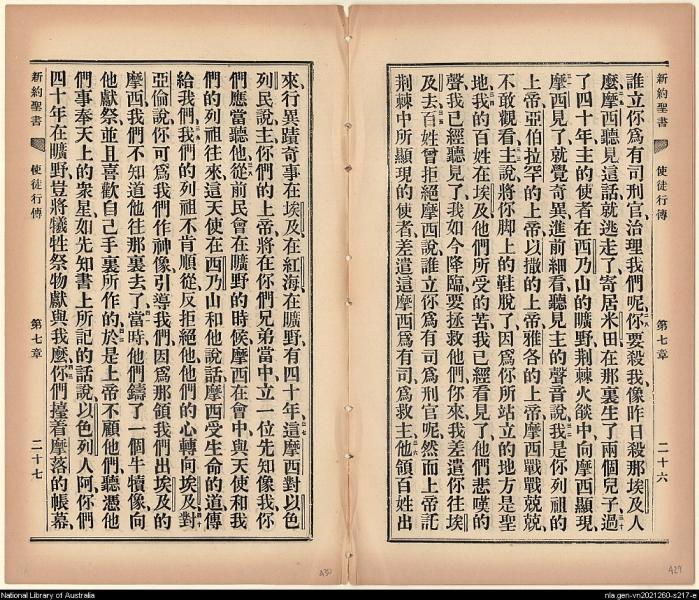 新約聖書 使徒行傳 第七章 二十六
誰立你爲有司刑官治理我們呢你要殺我像昨日殺那埃及人
麼摩西聽見這話就逃走了寄居米田在那裏生了兩個兒子過
了四十年主的使者在西乃山的曠野荆棘火燄中向摩西顯現
摩西見了就覺奇異進前細看聽見主的聲音說我是你列祖的
上帝亞伯拉罕的上帝以撒的上帝雅各的上帝摩西戰戰兢兢
不敢觀看主說將你脚上的鞋脫了因爲你所站立的地方是聖
地我的百姓在埃及他們所受的苦我已經看見了他們悲嘆的
聲我已經聽見了我如今降臨要拯救他們你來我差遣你往埃
及去百姓曾拒絕摩西說誰立你爲有司爲刑官呢然而上帝託
荆棘中所顯現的使者差遣這摩西爲有司爲救主他領百姓出
來行異蹟奇事在埃及在紅海在曠野有四十年這摩西對以色
列民說主你們的上帝將在你們兄弟當中立一位先知像我你
們應當聽他從前民會在曠野的時候摩西在會中與天使和我
們的列祖往來這天使在西乃山和他說話摩西受生命的道傳
給我們我們的列祖不肯順從反拒絕他他們的心轉向埃及對
亞倫說你可爲我們作神像引導我們因爲那領我們出埃及的
摩西我們不知道他往那裏去了當時他們鑄了一個牛犢像向
他獻祭並且喜歡自己手裏所作的於是上帝不顧他們聽憑他
們事奉天上的衆星如先知書上所記的話說以色列人阿你們
四十年在曠野豈將犧牲祭物獻與我麼你們擡着摩落的帳幕
新約聖書 使徒行傳 第七章 二十七
430
429
National Library of Australia
nla.gen-vn2021260-s217-e